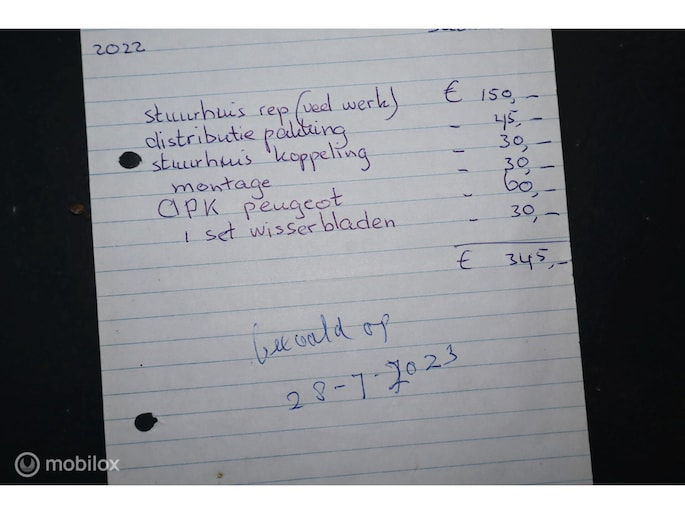 2022
stuurhuis rep (veel werk) € 150,-
distributie pakking - 45,-
stuurhuis koppeling - 30,-
montage - 30,-
APK peugeot - 60,-
1 set wisserbladen - 30,-
€ 345,-
betaald op
28-7-2023
mobilox